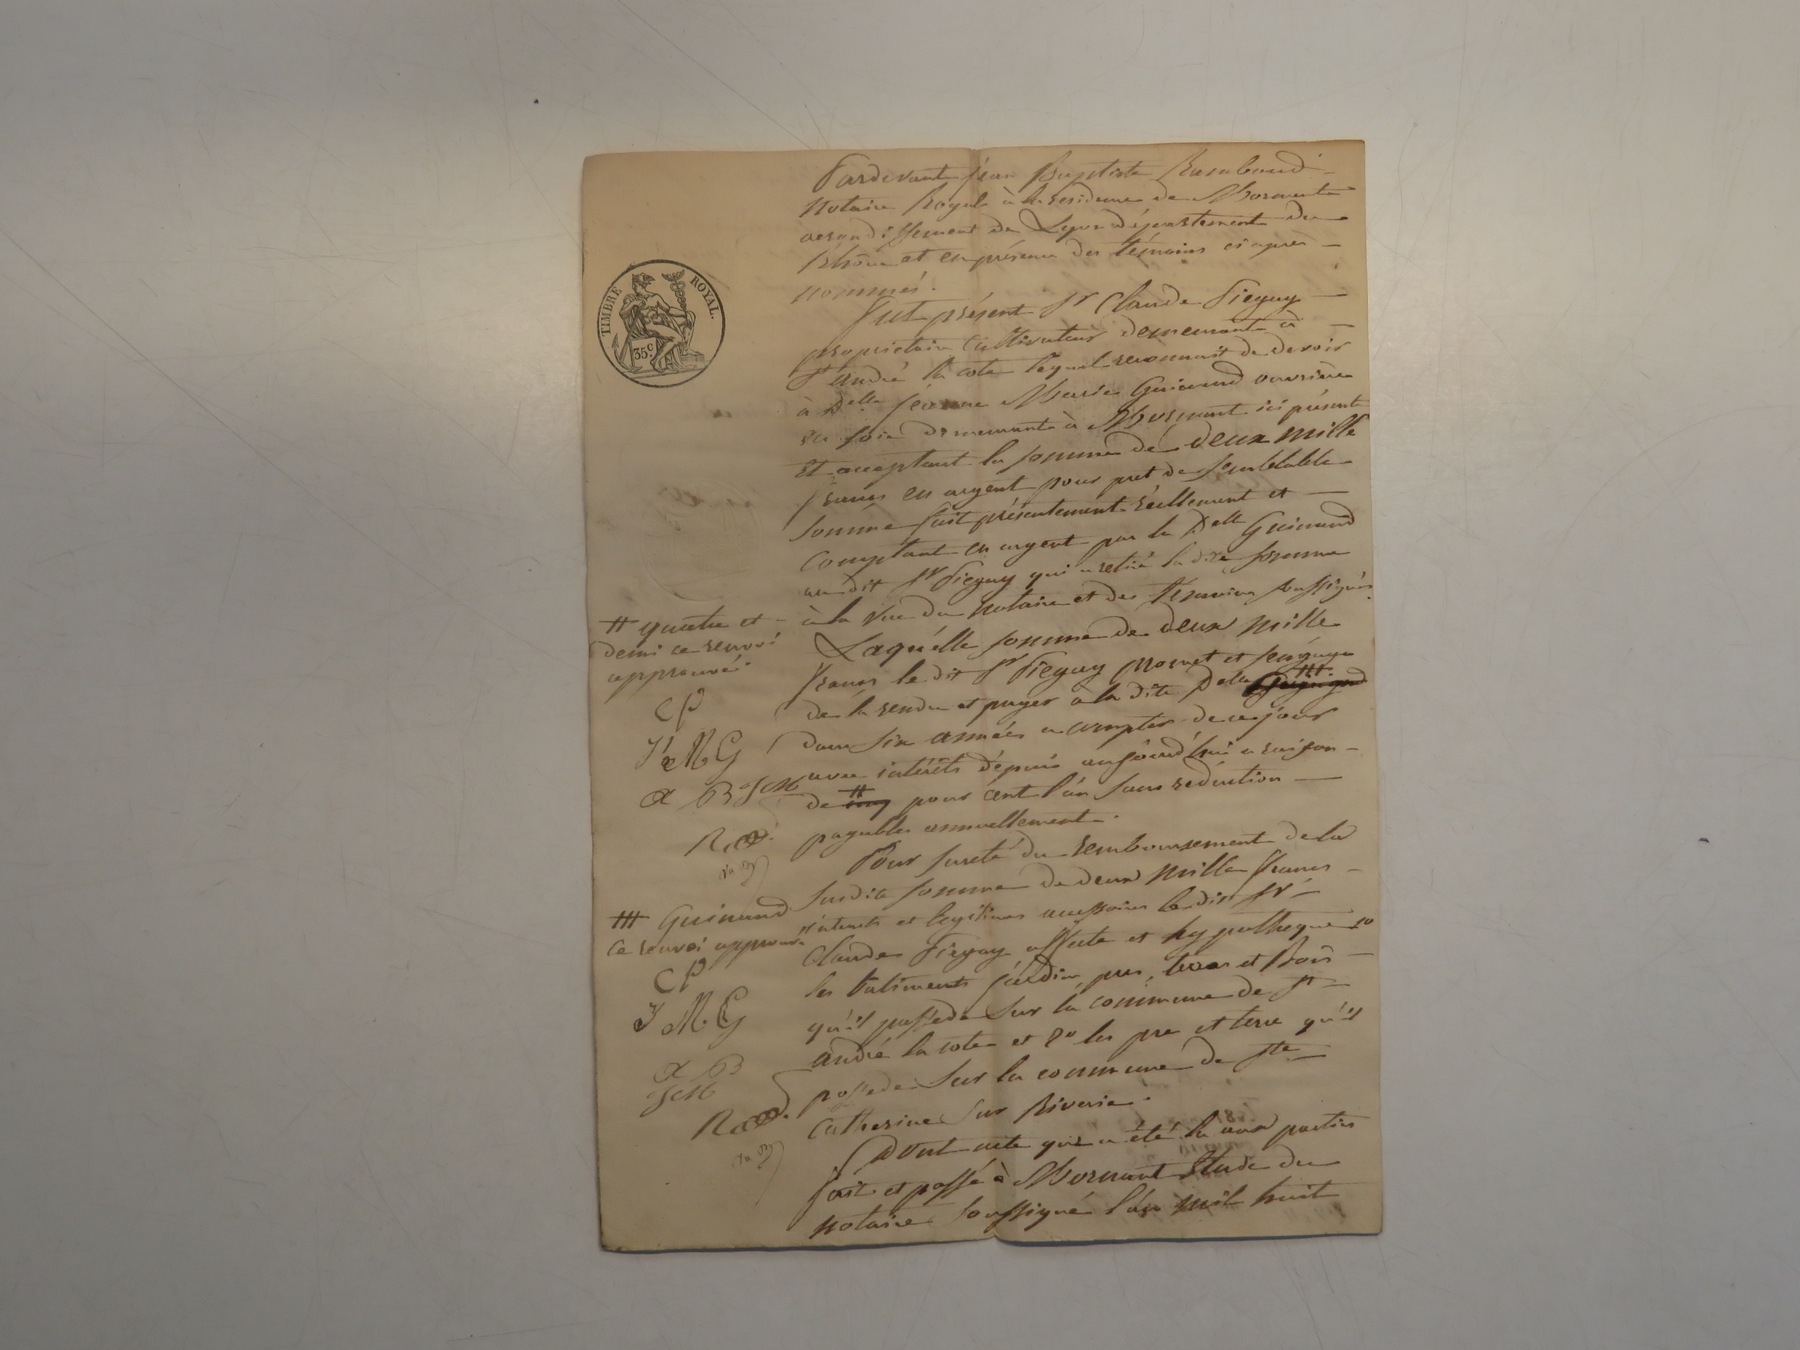 Pardevant jean Baptiste Rambaud
Notaire Royal à la residence de Mornant
arrondissement de Lyon département du
Rhône et en présence des témoins ci après
nommés.
Fut présent Sr Claude Pieguy
propriétaire Cultivateur demeurant à
St andré la cote lequel reconnait de devoir
à Delle jeanne Marie Guinand ouvrière
en soie demeurante à Mornant ici présente
et acceptant la somme de deux mille
francs en argent pour pret de semblable
somme fait présentement réellement et
comptant en argent par la Delle Guinand
au dit Sr Pieguy qui a retiré la dite somme
à la vue du notaire et des témoins soussignés.
Laquelle somme de deux mille
francs le dit Sr Pieguy promet et s'engage
de la rendre et payer à la dite Delle Guignand ###
dans six années a compter de ce jour
avec intérêts dépuis aujourd'hui a raison
de cinq # pour cent l'an sans réduction
payables annuellement.
Pour sureté du remboursement de la
susdite somme de deux mille francs
intérêts et légitimes accessoires le dit Sr
Claude Pieguy affecte et hypotheque 1o
les batiments jardin, pres, terres et bois
qu'il possede sur la commune de St
andré la cote et 2o les pre et terre qu'il
possede sur la commune de Ste
Catherine sur Riverie.
Dont acte qui a été lu aux parties
fait et passé à Mornant Etude du
notaire soussigné l'an mil huit
TIMBRE ROYAL.
35c.
# quatre et
demi ce renvoi
approuvé.
CP
J M G
B JCM
R
### Guinand
ce renvoi approuvé
CP
J M. G
B
JCM
R